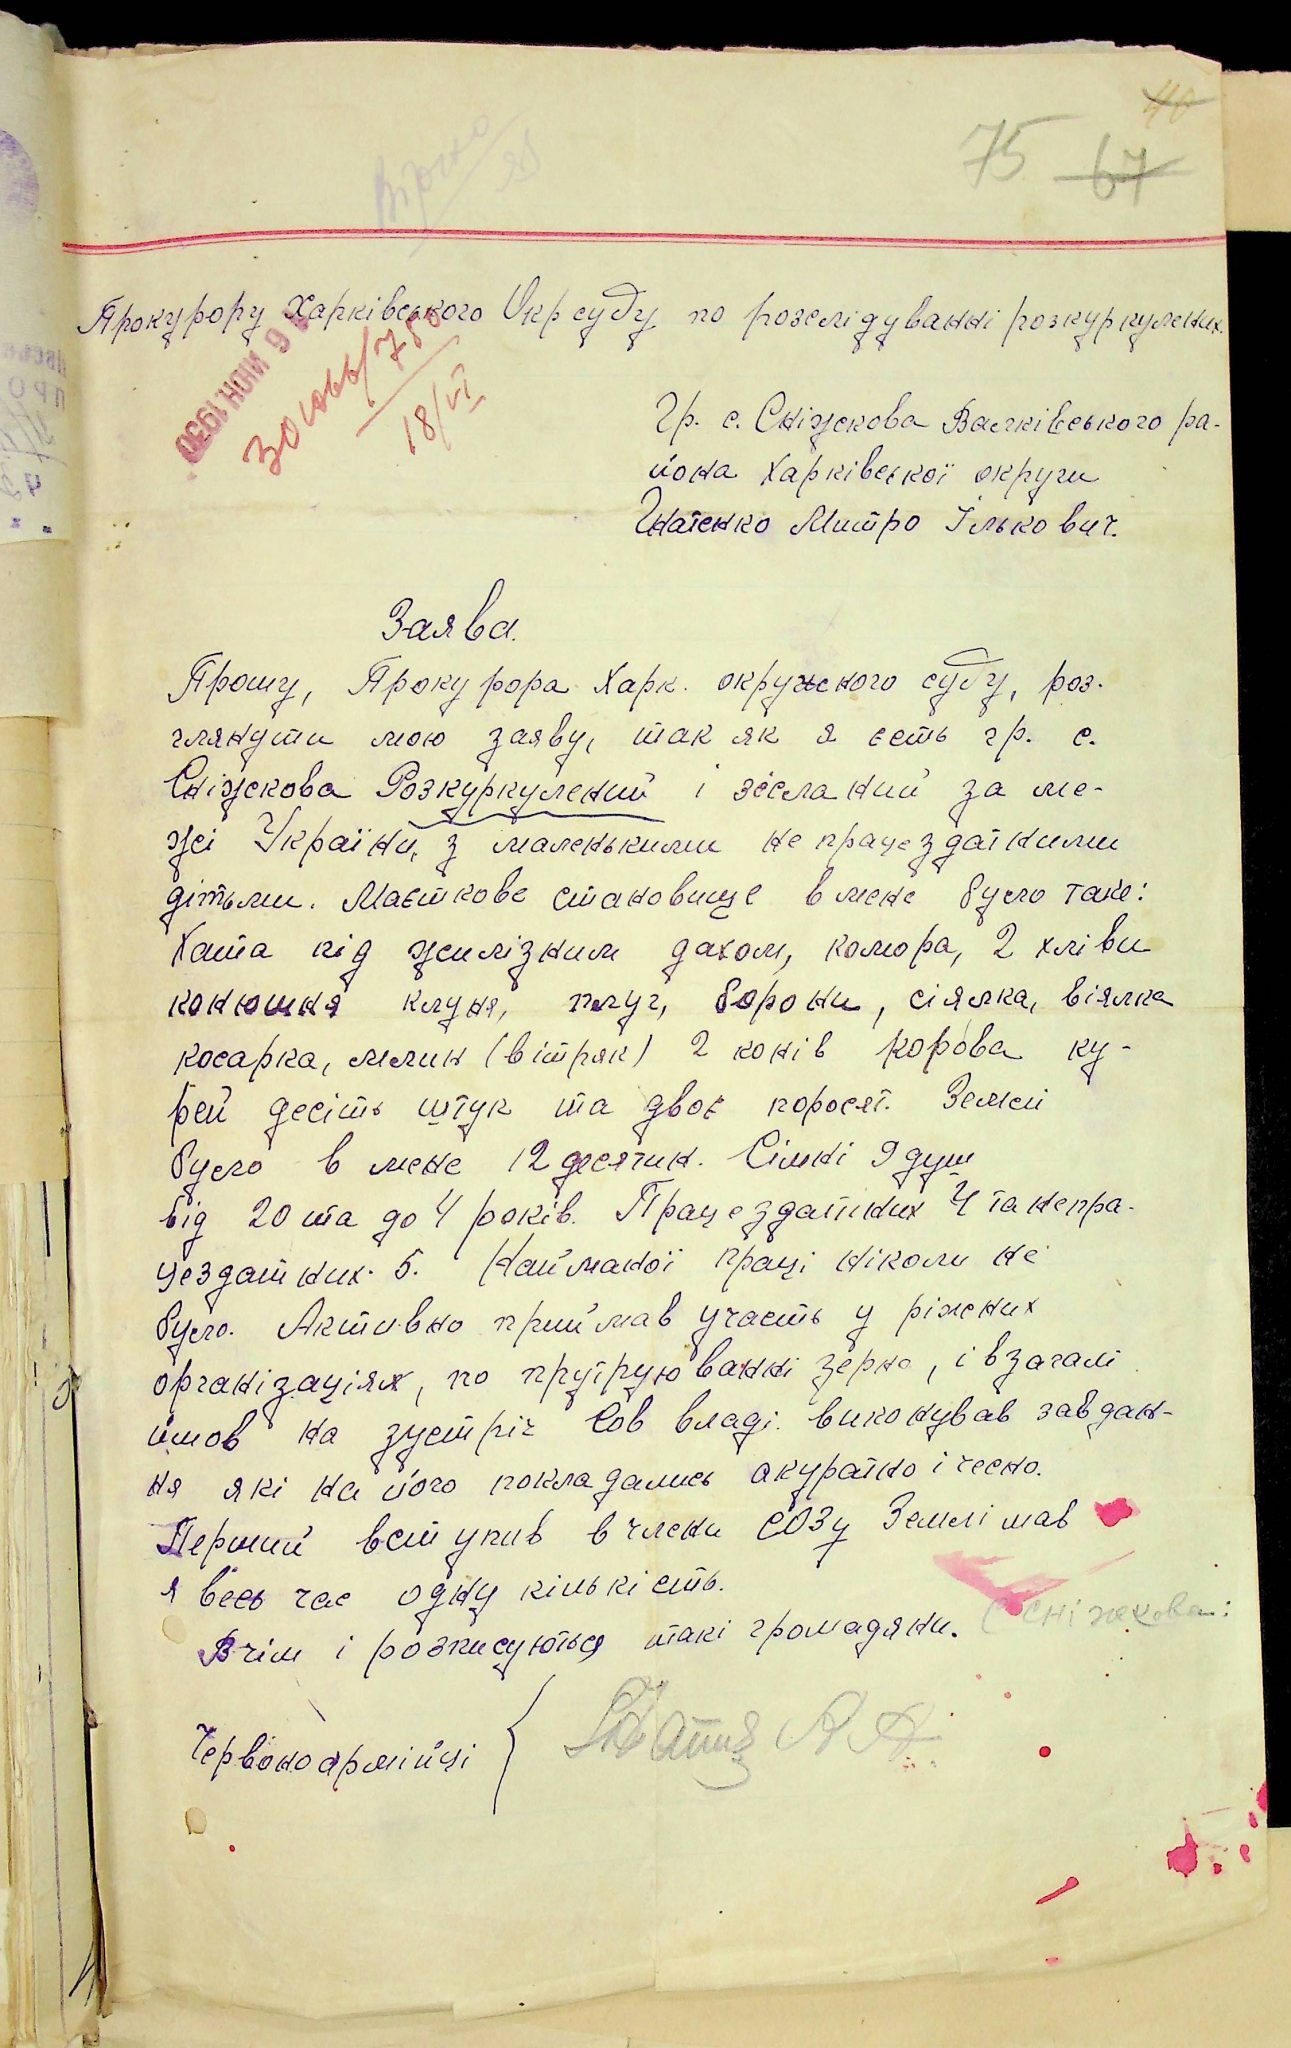 40
75 67
Вірно
Прокурору Харківського Окрсуду по розслідуванні розкуркулених.
6 ИЮН. 1930
18/VI
Гр. с. Сніжскова Валківського ра-
йона Харківської округи
Гнатенко Митро Ількович.
Заява.
Прошу, Прокурора Харк. окружного суду, роз-
глянути мою заяву, так як я єсть гр. с.
Сніжскова Розкуркулений і зісланий за ме-
жі України, з маленькими не працездатними
дітьми. Маєткове становище в мене було таке:
Хата під жилізним дахом, комора, 2 хліви
конюшня клуня, плуг, борони, сіялка, віялка
косарка, млин (вітряк) 2 конів корова ку-
рей десіть штук та двоє поросят. Землі
було в мене 12 десятин. Сімні 9 душ
від 20 та до 4 років. Працездатних 4 та непра-
цездатних. 5. Найманої праці ніколи не
було. Активно приймав участь у ріжних
організаціях, по протруюванні зерна, і взагалі
йшов на зустріч Сов владі. виконував завдан-
ня які на його покладались акуратно і чесно.
Перший вступив в члени СОЗу Землі мав
я весь час одну кількість.
В чім і розписуються такі громадяни. с Сніжкова:
Червоноармійці {